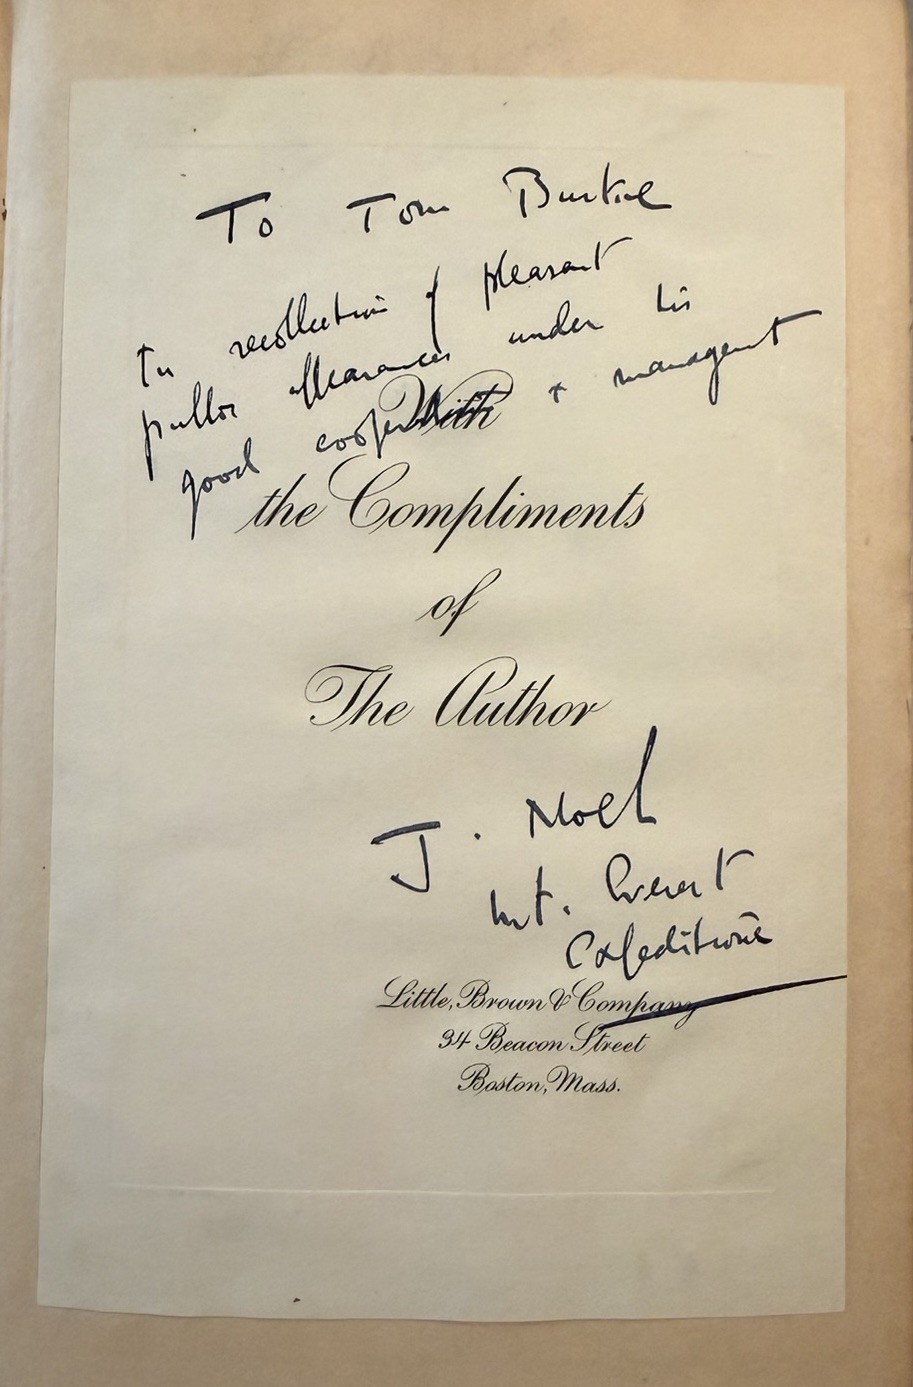 To Tom Burke
In recollection of pleasant
public appearances under his
good cooperation + management
With
the Compliments
of
The Author
J. Noel
Mt. Everest
Expeditions
Little, Brown & Company
34 Beacon Street
Boston, Mass.